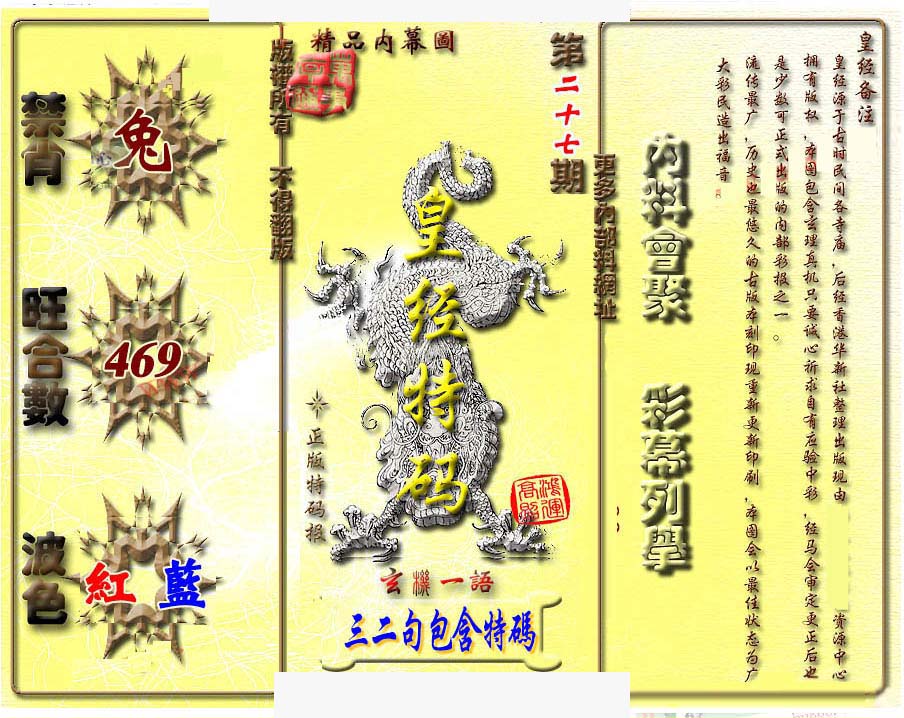 禁肖
兔
旺合數
469
波色
紅 藍
版權所有 不得翻版
精品内幕圖
第二十七期
皇经特码
正版特码报
鴻運高照
玄機一語
三二句包含特碼
更多内部料網址
内料會聚
彩幕列舉
皇经备注
皇经源于古时民间各寺庙,后经香港华新社整理出版现由 资源中心
拥有版权,本图包含玄理真机只要诚心祈求自有应验中彩,经马会审定更正后也
是少数可正式出版的内部彩报之一。
流传最广,历史也最悠久的古版本刻印现重新更新印刷,本图会以最佳状态为广
大彩民造出福音